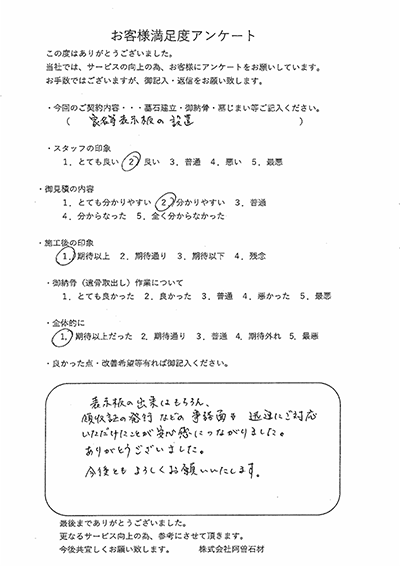 お客様満足度アンケート
この度はありがとうございました。
当社では、サービスの向上の為、お客様にアンケートをお願いしています。
お手数ではございますが、御記入・返信をお願い致します。
・今回のご契約内容・・・墓石建立・御納骨・墓じまい等ご記入ください。
（ 家名等表示板の設置 ）
・スタッフの印象
1. とても良い 2. 良い 3. 普通 4. 悪い 5. 最悪
・御見積の内容
1. とても分かりやすい 2. 分かりやすい 3. 普通
4. 分からなった 5. 全く分からなかった
・施工後の印象
1. 期待以上 2. 期待通り 3. 期待以下 4. 残念
・御納骨（遺骨取出し）作業について
1. とても良かった 2. 良かった 3. 普通 4. 悪かった 5. 最悪
・全体的に
1. 期待以上だった 2. 期待通り 3. 普通 4. 期待外れ 5. 最悪
・良かった点・改善希望等有れば御記入ください。
表示板の出来はもちろん、
領収証の発行などの事務面も迅速にご対応
いただけたことが安心感につながりました。
ありがとうございました。
今後ともよろしくお願いいたします。
最後までありがとうございました。
更なるサービス向上の為、参考にさせて頂きます。
今後共宜しくお願い致します。 株式会社阿曽石材